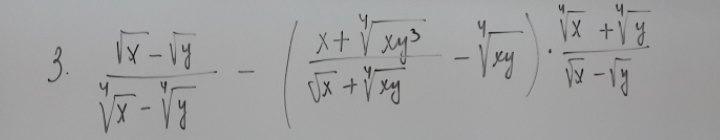 3. \frac{\sqrt{x} - \sqrt{y}}{\sqrt[4]{x} - \sqrt[4]{y}} - \left( \frac{x + \sqrt[4]{xy^3}}{\sqrt{x} + \sqrt[4]{xy}} - \sqrt[4]{xy} \right) \cdot \frac{\sqrt[4]{x} + \sqrt[4]{y}}{\sqrt{x} - \sqrt{y}}